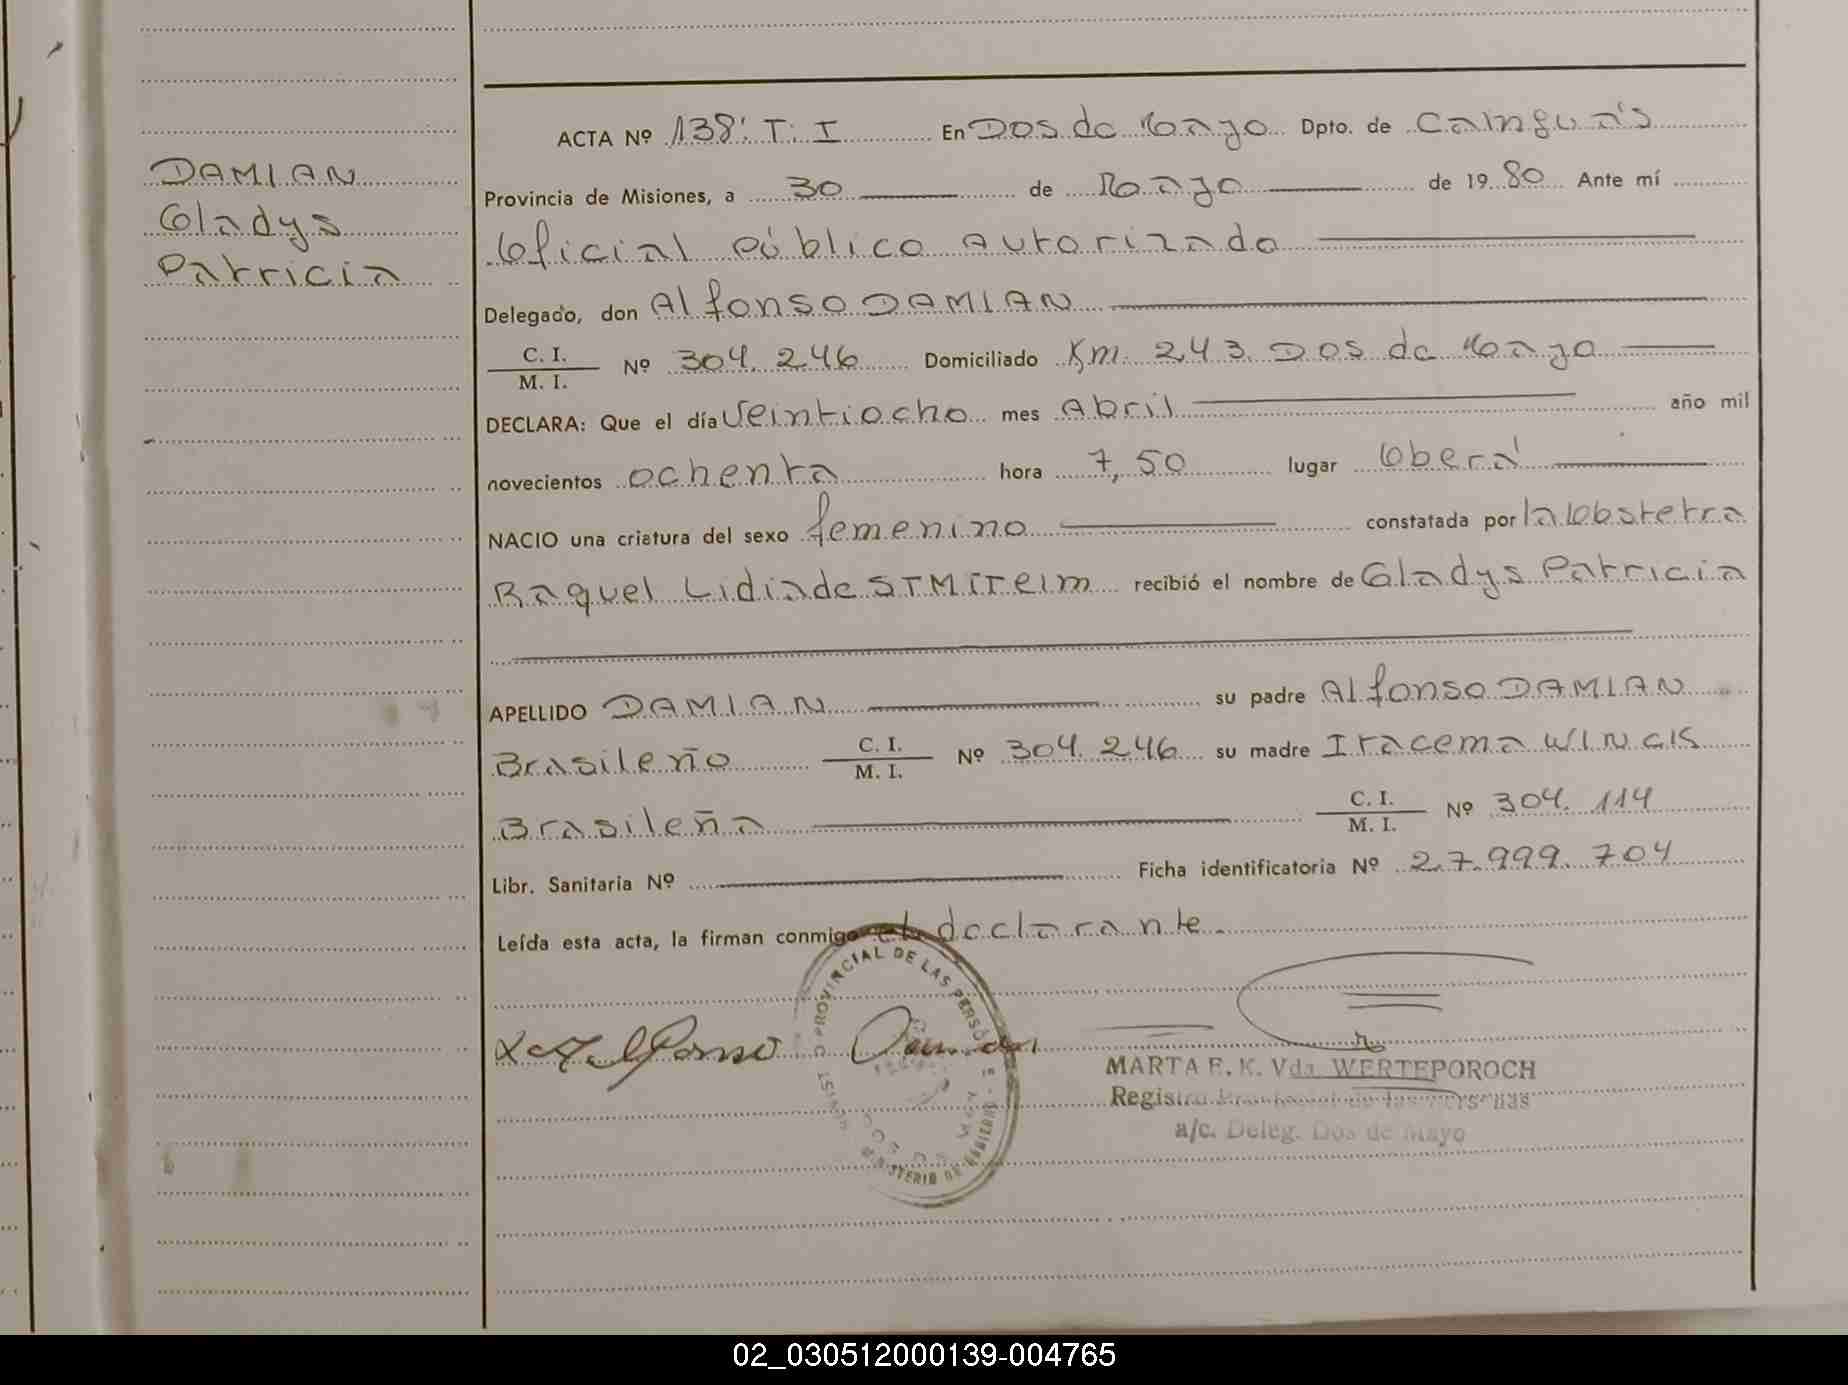 DAMIAN
Gladys
Patricia
ACTA Nº 138: T. I En Dos de Mayo Dpto. de Cainguás
Provincia de Misiones, a 30 de Mayo de 1980 Ante mí
Oficial Público Autorizado
Delegado, don Alfonso DAMIAN
C. I.
M. I. Nº 304.246 Domiciliado Km. 243 Dos de Mayo
DECLARA: Que el día Veintiocho mes Abril año mil
novecientos ochenta hora 7,50 lugar Oberá
NACIO una criatura del sexo femenino constatada por la Obstetra
Raquel Lidia de STMITEIM recibió el nombre de Gladys Patricia
APELLIDO DAMIAN su padre Alfonso DAMIAN
Brasileño C. I. M. I. Nº 304.246 su madre Iracema
Brasileña C. I. M. I. Nº 304.114
Libr. Sanitaria Nº Ficha identificatoria Nº 27.999.704
Leída esta acta, la firman conmigo el declarante.
PROVINCIAL DE LAS PERSO
Alfonso
MARTA E. K. Vda. WERTEPOROCH
Registro Provincial de las Personas
a/c. Deleg. Dos de Mayo
02_030512000139-004765